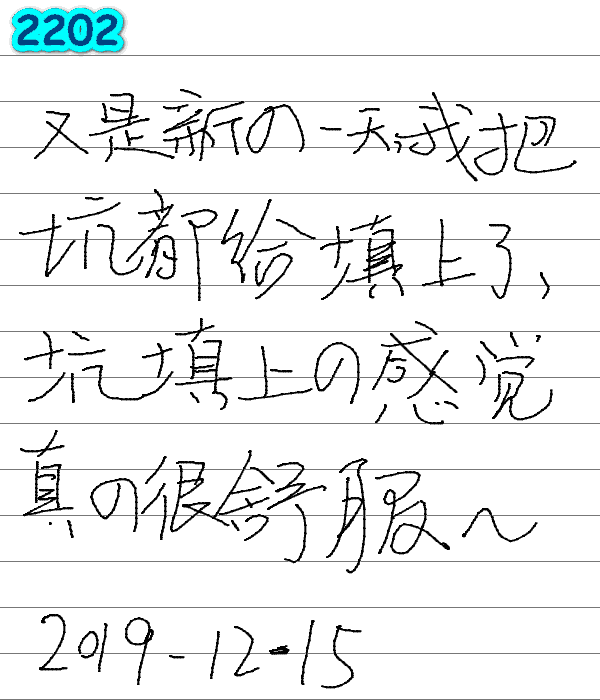 2202
又是新の一天,我把
坑都给填上了,
坑填上の感觉
真の很舒服~
2019-12-15